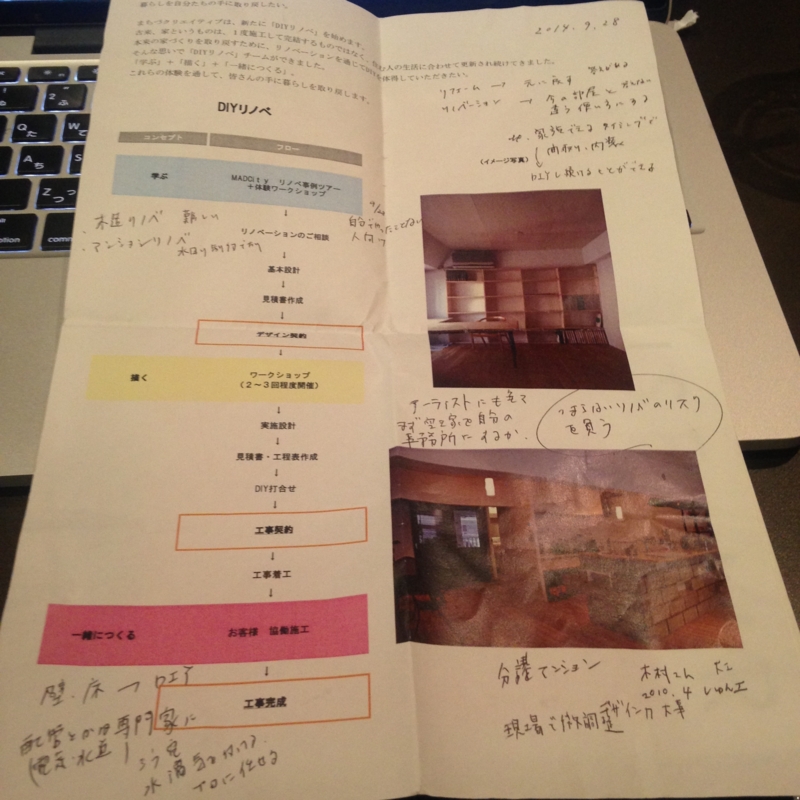 暮らしを自分たちの手に取り戻したい。
まちづクリエイティブは、新たに「DIYリノベ」を始めます。
古来、家というものは、1度施工して完結するものではなく、
人の生活に合わせて更新され続けてきました。
本来の家づくりを取り戻すために、リノベーションを通じて
体得していただきたい。
そんな思いで「DIYリノベ」チームができました。
「学ぶ」+「描く」+「一緒につくる」、
これらの体験を通して、皆さんの手に暮らしを取り戻します。
DIYリノベ
コンセプト
フロー
学ぶ
MADCity リノベ事例ツアー
+体験ワークショップ
↓
木造リノベ 難しい
・マンションリノベ
リノベーションのご相談
↓
基本設計
↓
見積書作成
↓
デザイン契約
↓
描く
ワークショップ
(2~3回程度開催)
↓
実施設計
↓
見積書・工程表作成
↓
DIY打合せ
↓
工事契約
↓
工事着工
↓
一緒につくる
お客様 協働施工
↓
工事完成
壁・床 →
配管とかは専門家に
プロに任せる
2014.9.28
リフォーム → 元に戻す
リノベーション → 今の部屋と
違う使い方にする
(イメージ写真)
間取り、内装
↓
DIYし続けることができる
アーティストにも
まず空き家を自分の
事務所にするか.
つまらないリノベのリスク
を負う
分譲マンション
木村さん
2010.4 しゅん工
現場で
大事